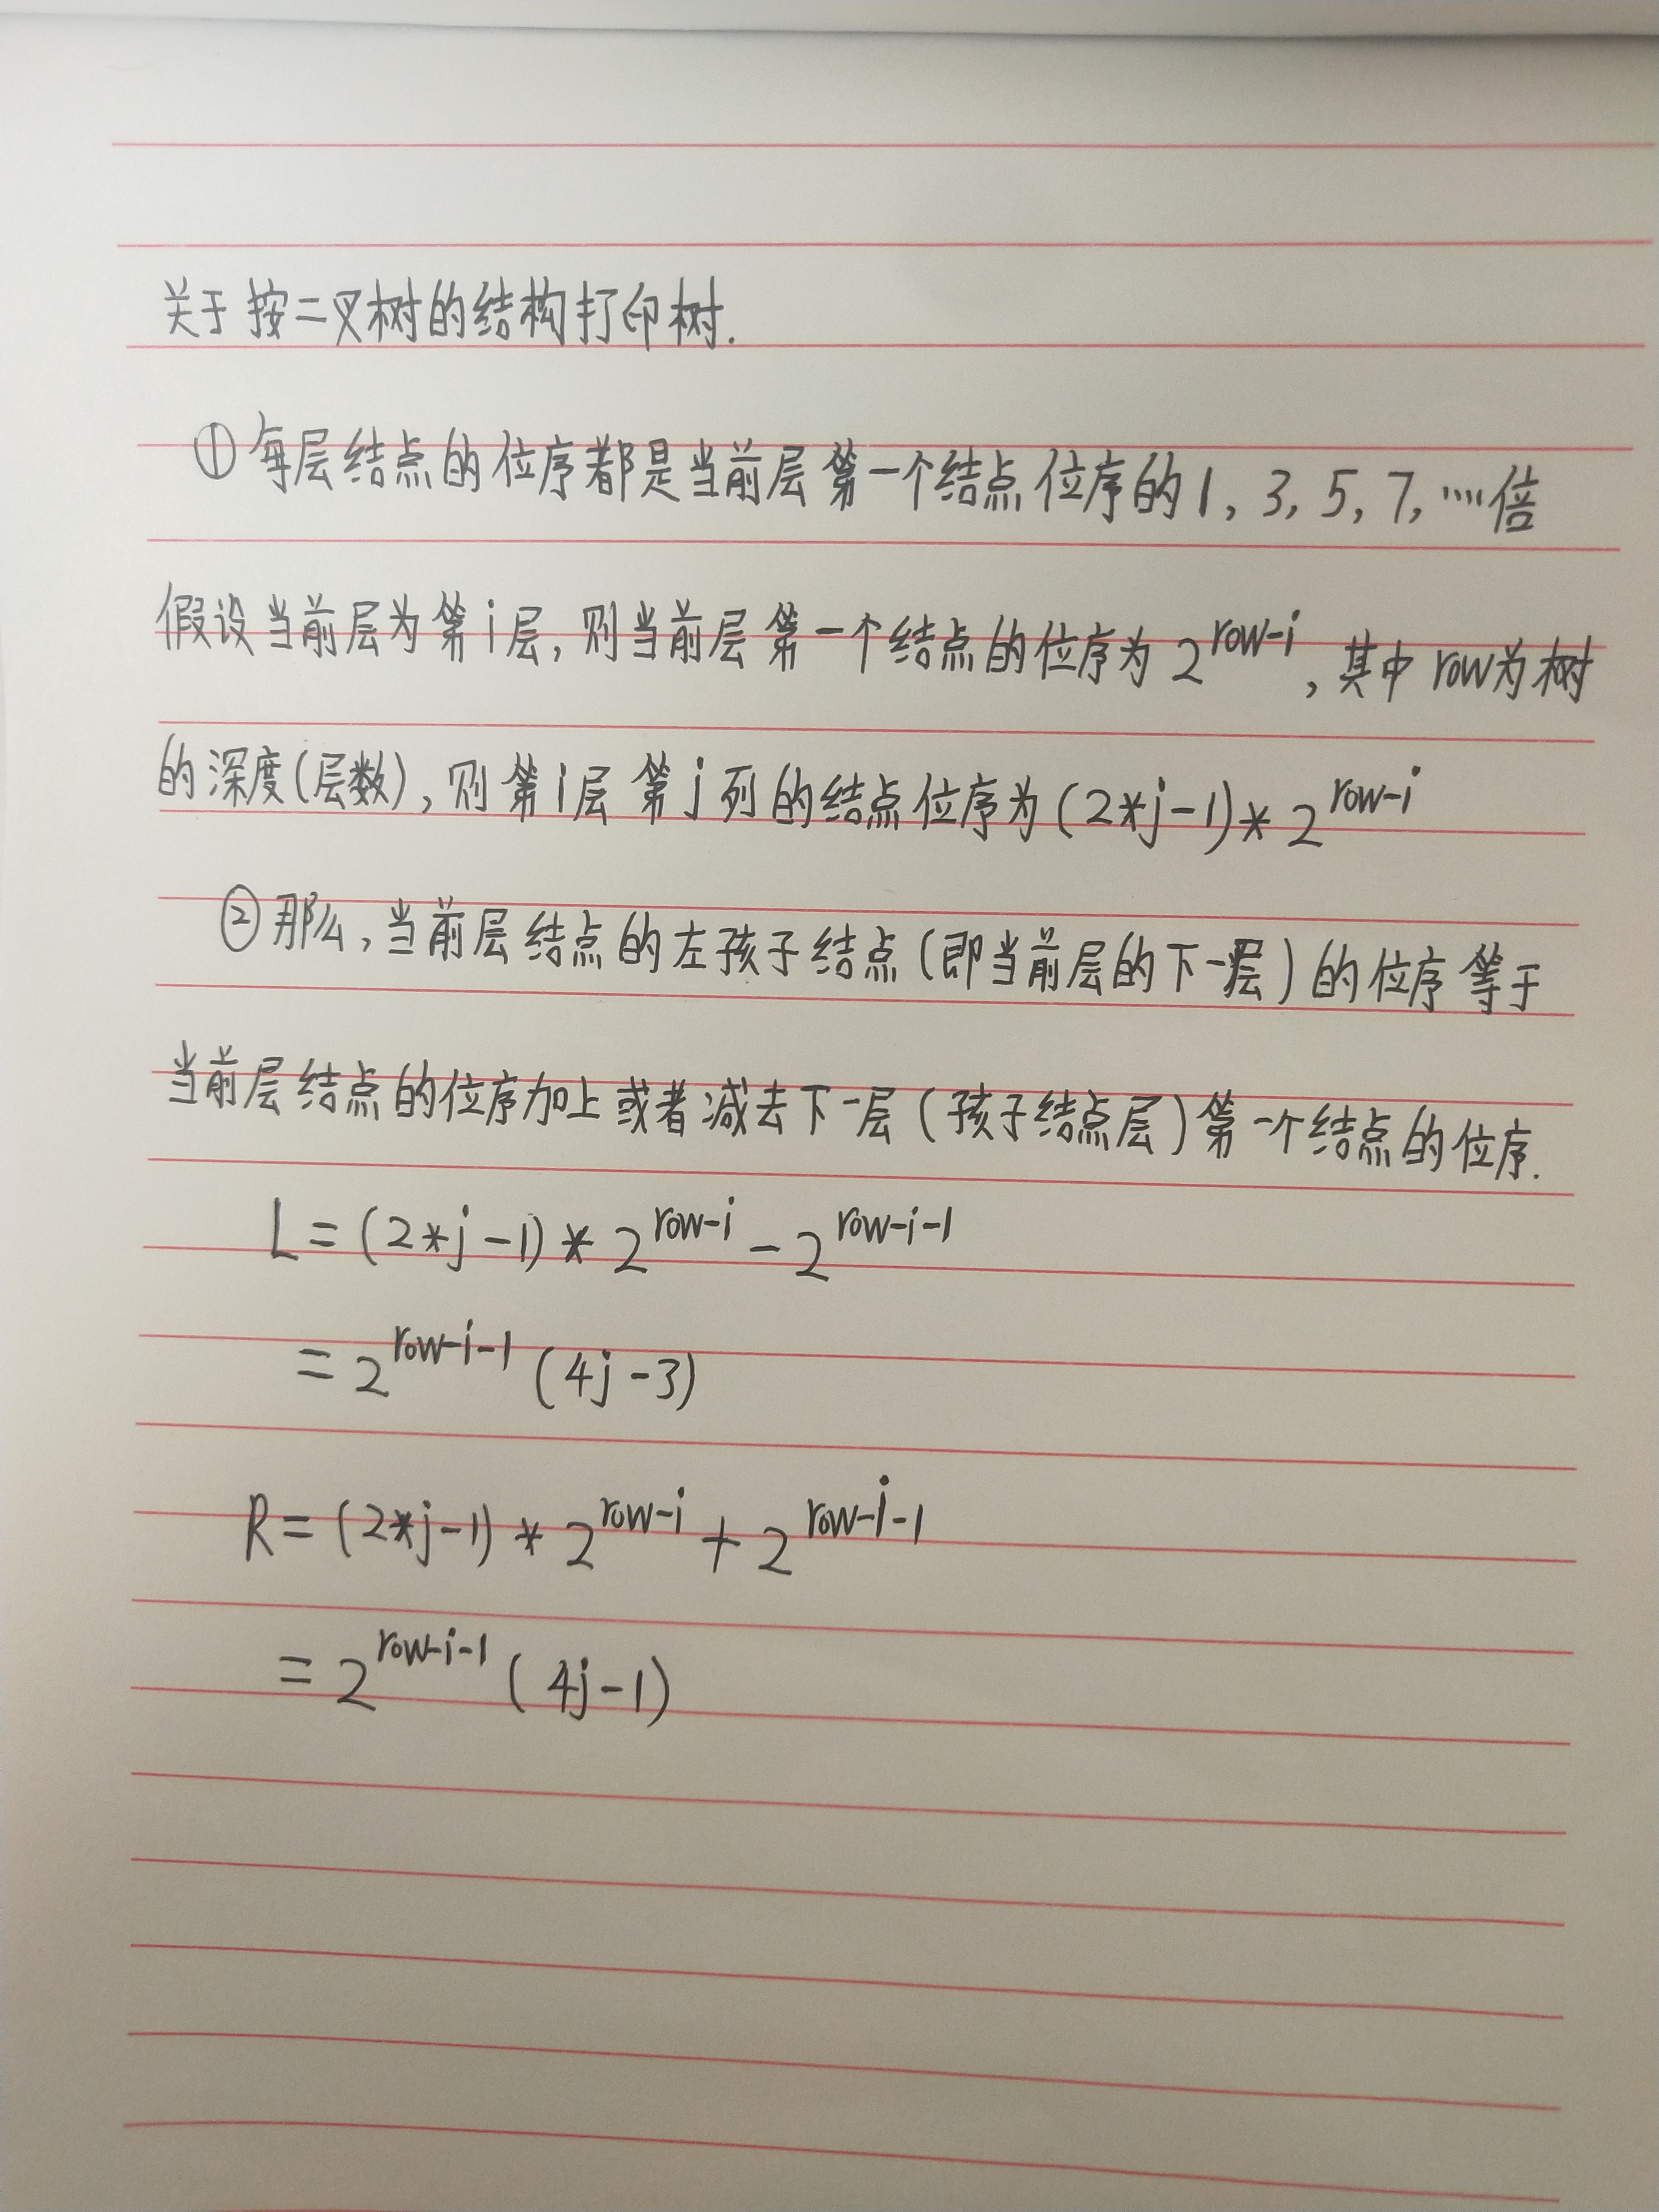 关于按二叉树的结构打印树.
①每层结点的位序都是当前层第一个结点位序的1, 3, 5, 7, ……倍
假设当前层为第i层, 则当前层第一个结点的位序为2^{row-i}, 其中row为树
的深度(层数), 则第i层第j列的结点位序为(2*j-1)*2^{row-i}
②那么, 当前层结点的左孩子结点(即当前层的下一层)的位序等于
当前层结点的位序加上或者减去下一层(孩子结点层)第一个结点的位序.
L=(2*j-1)*2^{row-i}-2^{row-i-1}
=2^{row-i-1}(4j-3)
R=(2*j-1)*2^{row-i}+2^{row-i-1}
=2^{row-i-1}(4j-1)